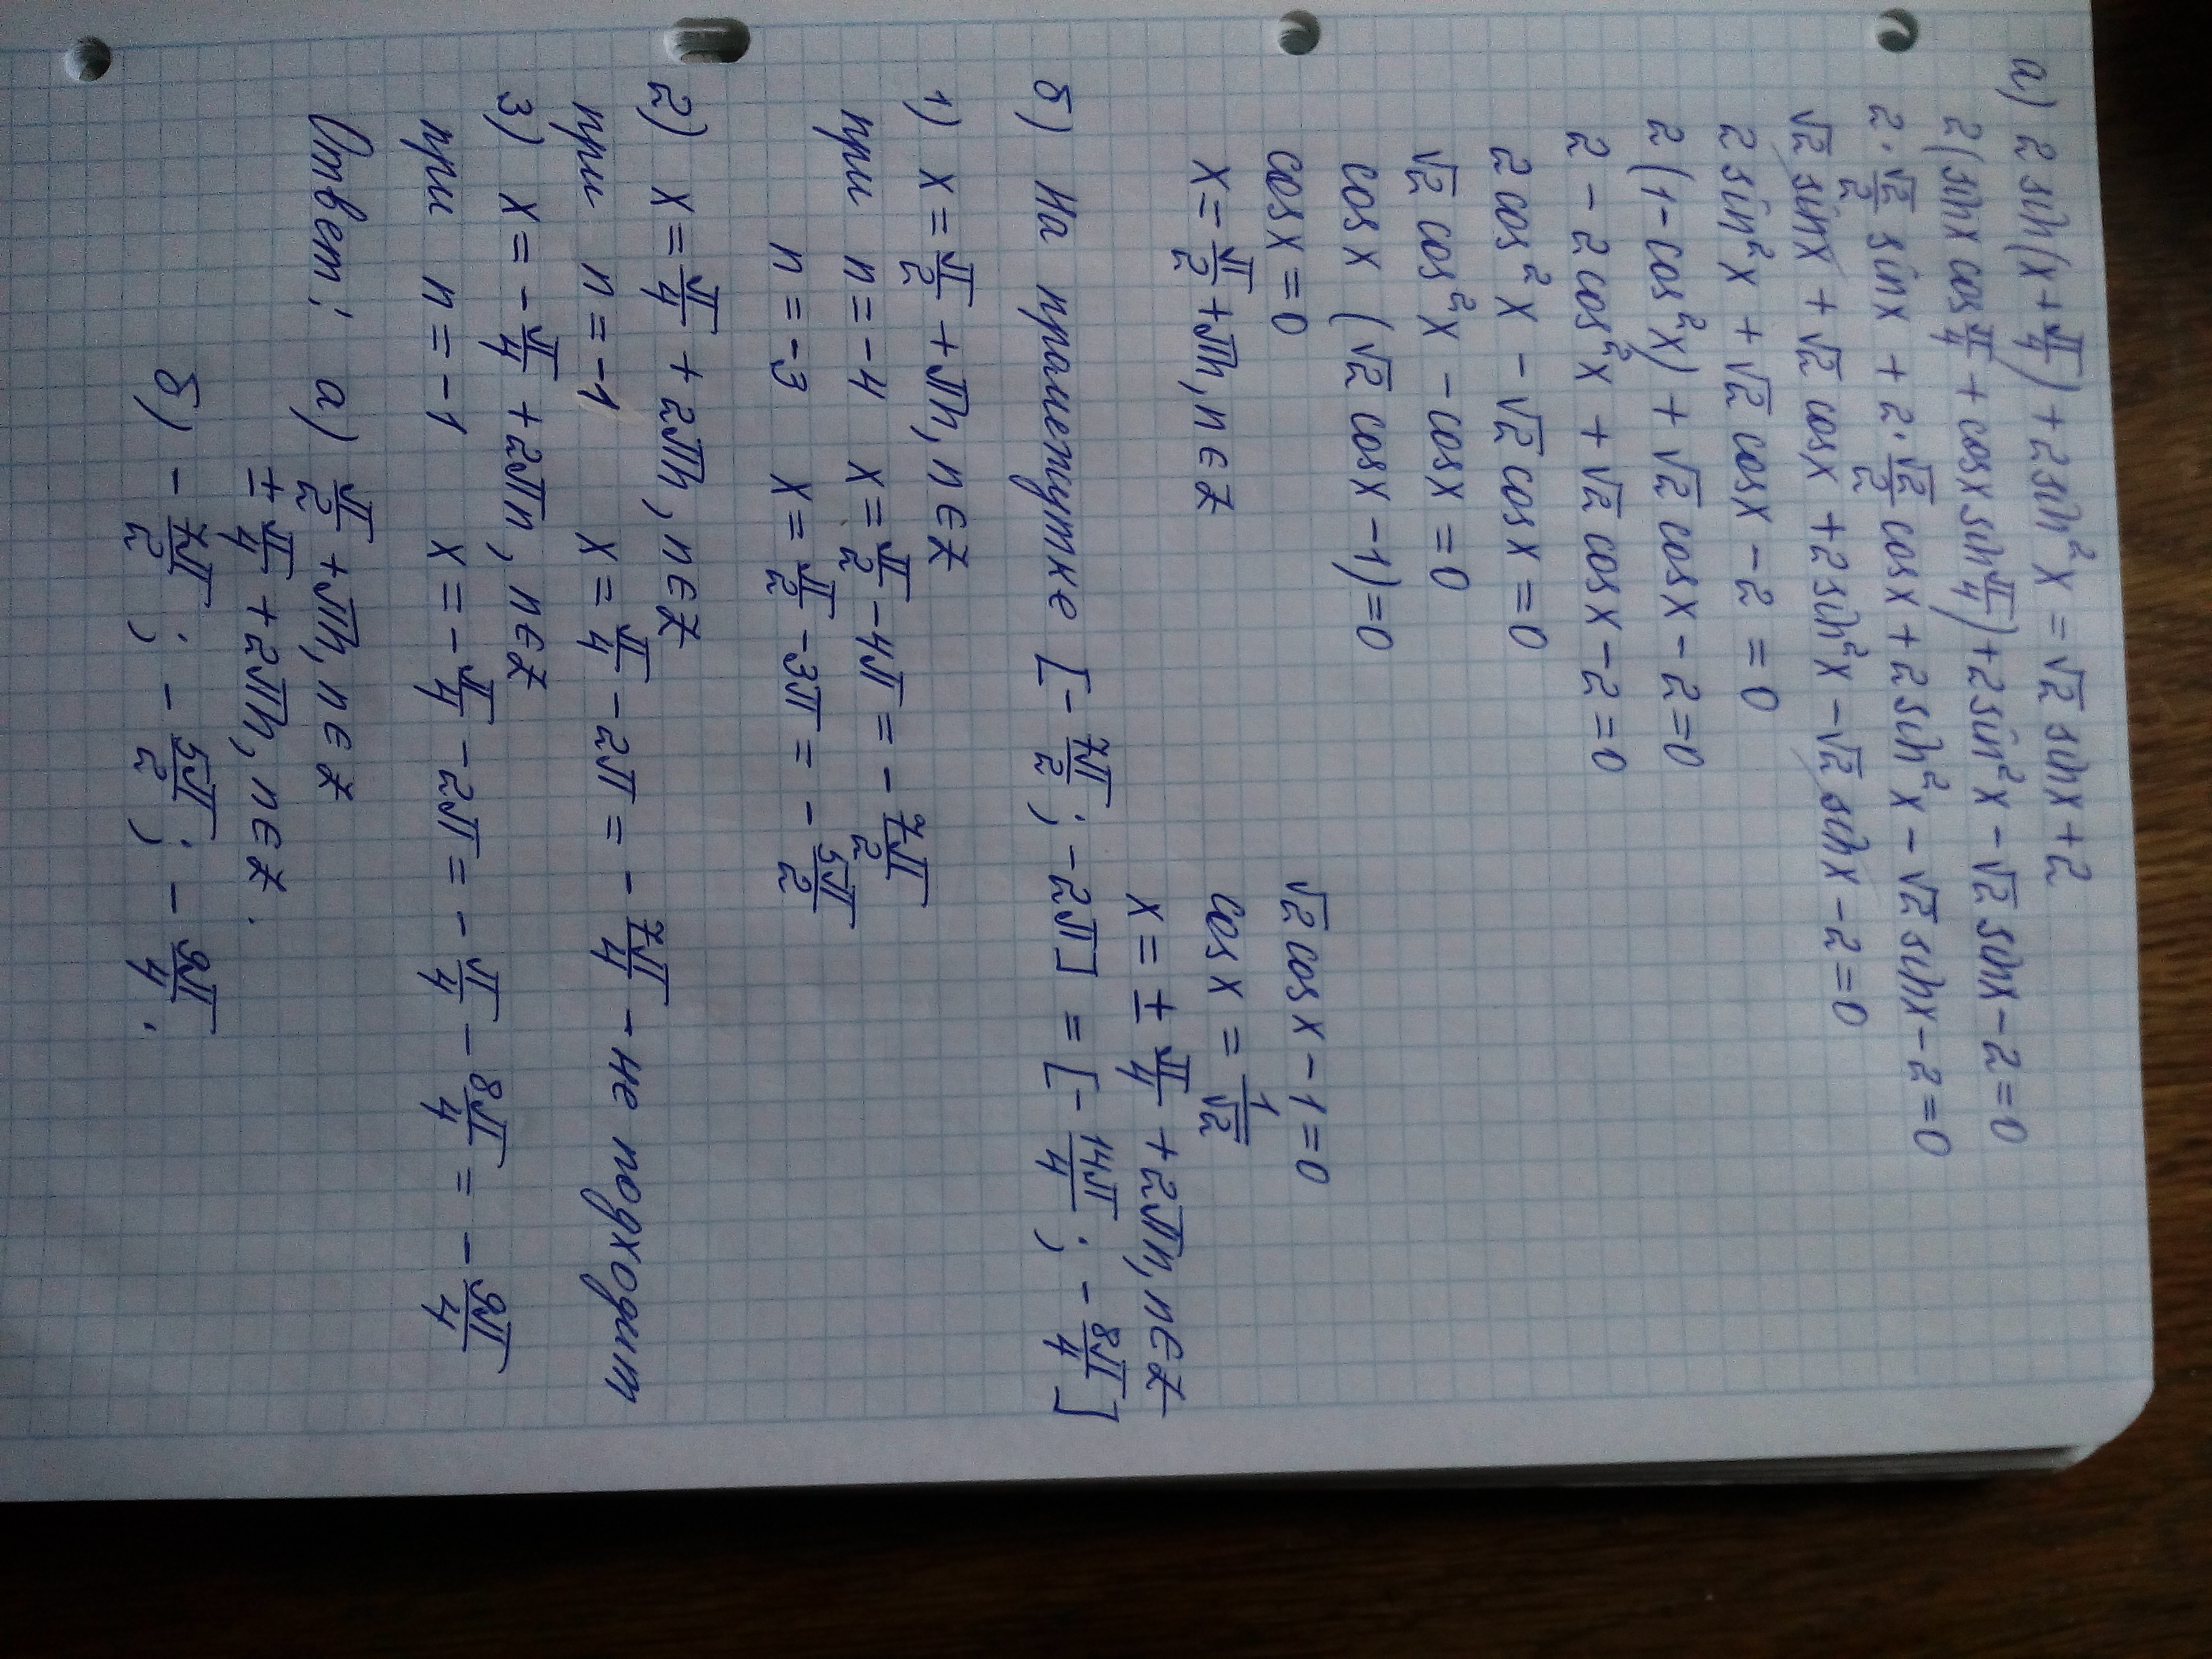 а) 2 sin(x + π/4) + 2 sin²x = √2 sinx + 2
2(sinx cos π/4 + cosx sin π/4) + 2 sin²x − √2 sinx − 2 = 0
2 · √2/2 sinx + 2 · √2/2 cosx + 2 sin²x − √2 sinx − 2 = 0
√2 sinx + √2 cosx + 2 sin²x − √2 sinx − 2 = 0
2 sin²x + √2 cosx − 2 = 0
2 (1 − cos²x) + √2 cosx − 2 = 0
2 − 2 cos²x + √2 cosx − 2 = 0
2 cos²x − √2 cosx = 0
√2 cos²x − cosx = 0
cosx (√2 cosx − 1) = 0
cosx = 0 √2 cosx − 1 = 0
x = π/2 + πn, n ∈ Z cosx = 1/√2
x = ± π/4 + 2πn, n ∈ Z
б) На промежутке [− 7π/2 ; −2π] = [− 14π/4 ; − 8π/4]
1) x = π/2 + πn, n ∈ Z
при n = −4 x = π/2 − 4π = − 7π/2
n = −3 x = π/2 − 3π = − 5π/2
2) x = π/4 + 2πn, n ∈ Z
при n = −1 x = π/4 − 2π = − 7π/4 − не подходит
3) x = − π/4 + 2πn, n ∈ Z
при n = −1 x = − π/4 − 2π = − π/4 − 8π/4 = − 9π/4
Ответ: а) π/2 + πn, n ∈ Z
± π/4 + 2πn, n ∈ Z.
б) − 7π/2 ; − 5π/2 ; − 9π/4.